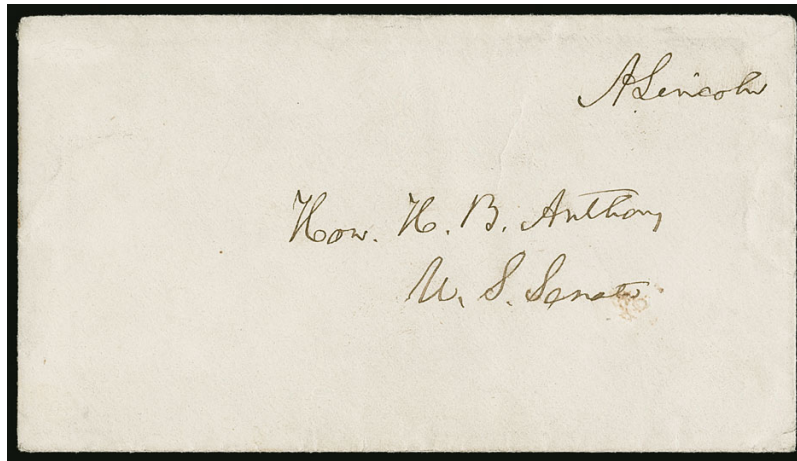 A. Lincoln
Hon. H. B. Anthony
U. S. Senate